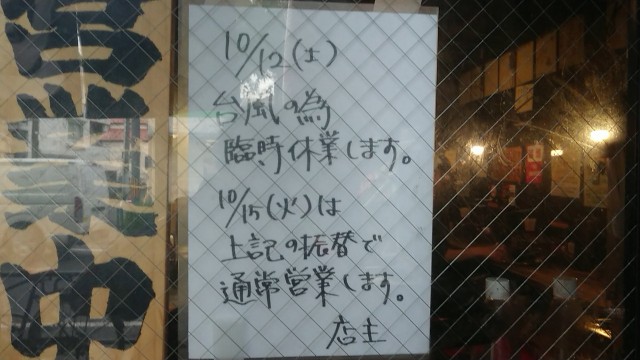 営業中
10/12(土)
台風の為
臨時休業します。
10/15(火)は
上記の振替で
通常営業します。
店主